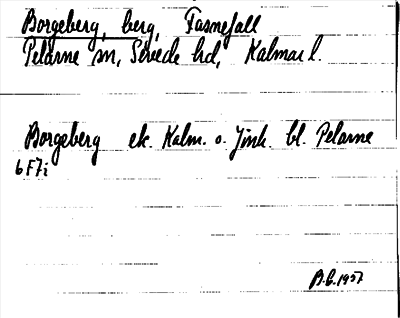 Borgeberg, berg, Fasnefall
Pelarne sn, Sevede hd, Kalmar l.
Borgeberg ek. Kalm. o. Jönk. bl. Pelarne
6F7i
B.G. 1957